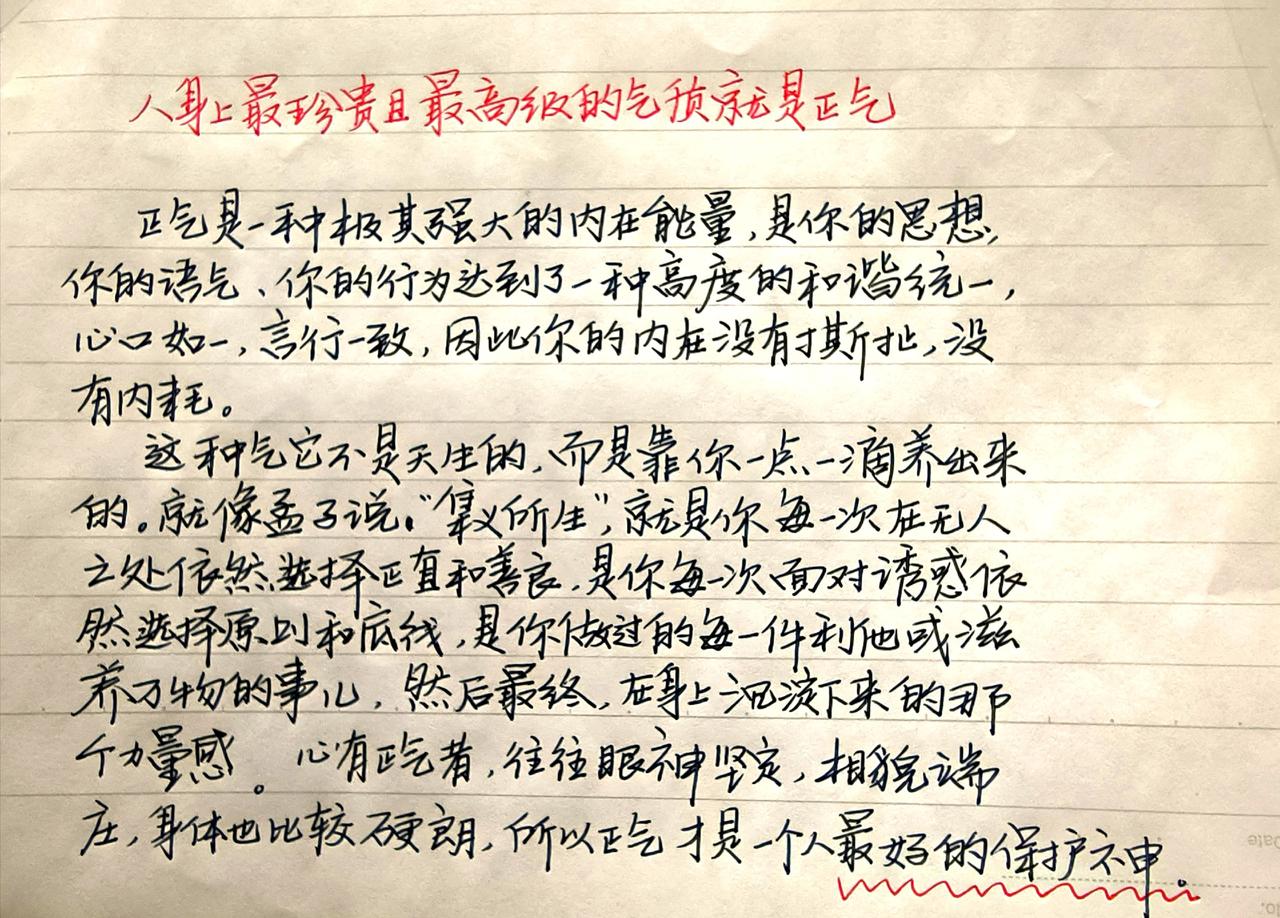 人身上最珍贵且最高级的气质就是正气
正气是一种极其强大的内在能量,是你的思想,
你的语气、你的行为达到了一种高度的和谐统一,
心口如一,言行一致,因此你的内在没有撕扯,没
有内耗。
这种气它不是天生的,而是靠你一点一滴养出来
的。就像孟子说:“集义所生”,就是你每一次在无人
之处依然选择正直和善良,是你每一次面对诱惑依
然选择原则和底线,是你做过的每一件利他或滋
养万物的事儿,然后最终,在身上沉淀下来的那
个力量感。心有正气者,往往眼神坚定,相貌端
庄,身体也比较硬朗,所以正气才是一个人最好的保护神。
Date
No.